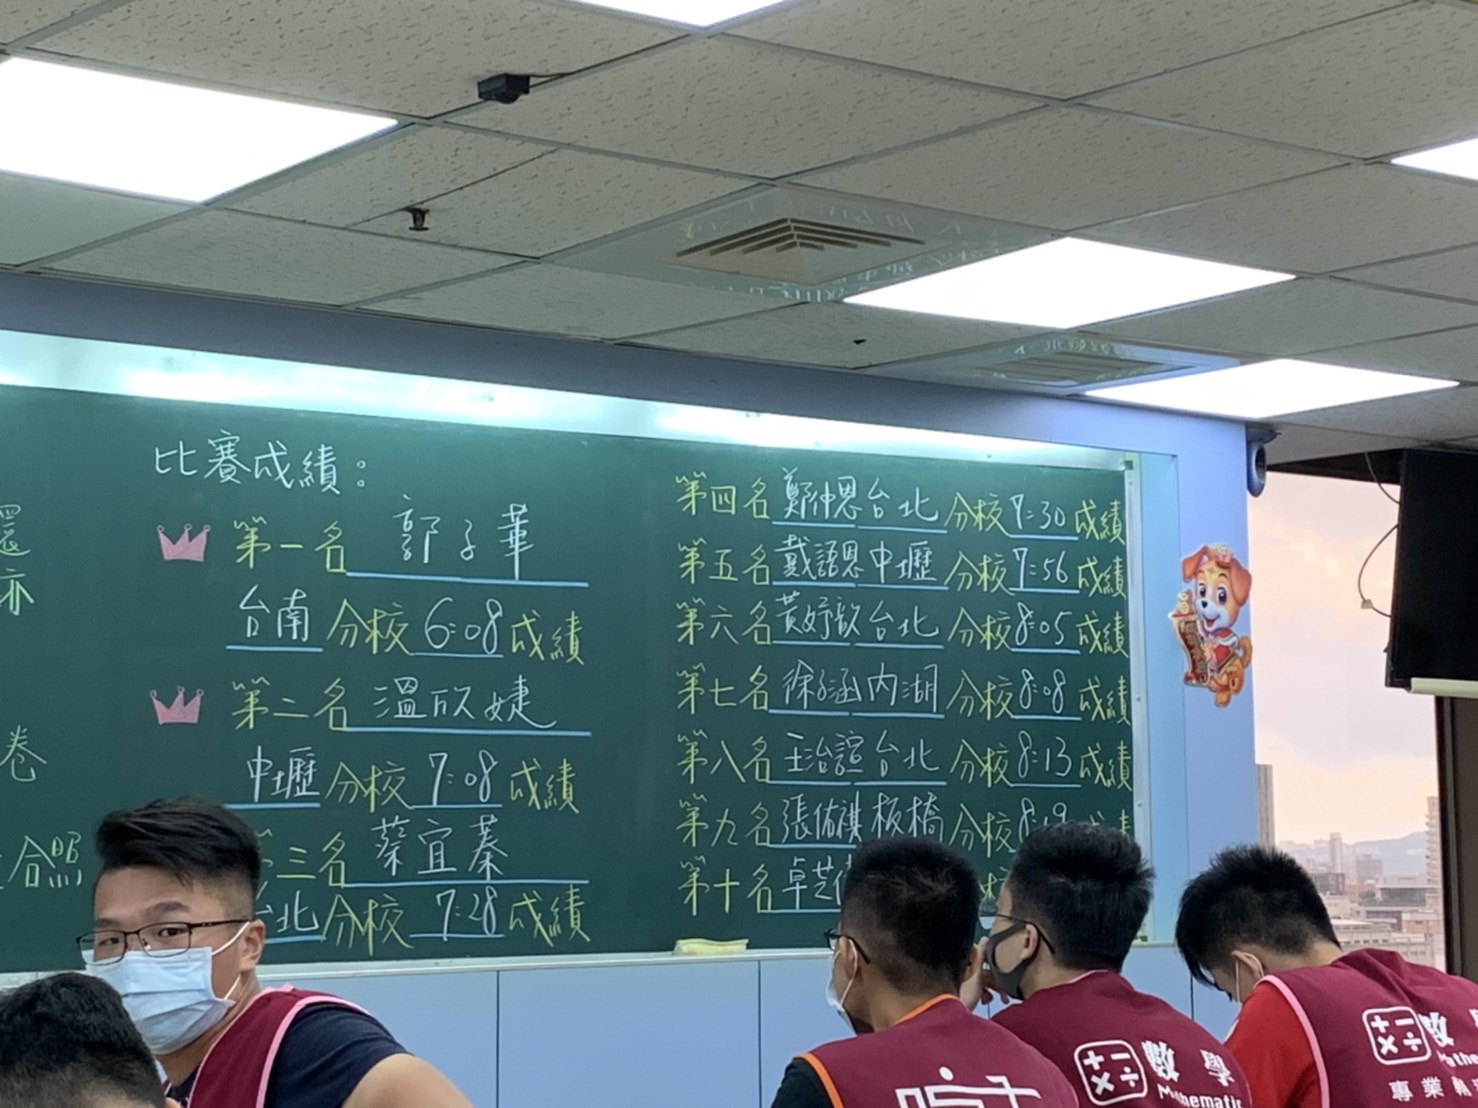 還
亦
卷
合照
比賽成績：
第一名 郭子華
台南分校6:08成績
第二名 溫欣婕
中壢分校7:08成績
三名 蔡宜蓁
北分校7:28成績
第四名鄭仲恩台北分校7:30成績
第五名戴語恩中壢分校7:56成績
第六名黃妤歆台北分校8:05成績
第七名徐子涵內湖分校8:08成績
第八名王治諠台北分校8:13成績
第九名張佑祺板橋分校8:19
第十名卓芝
數學
Mathematic
數
Mathe
專業